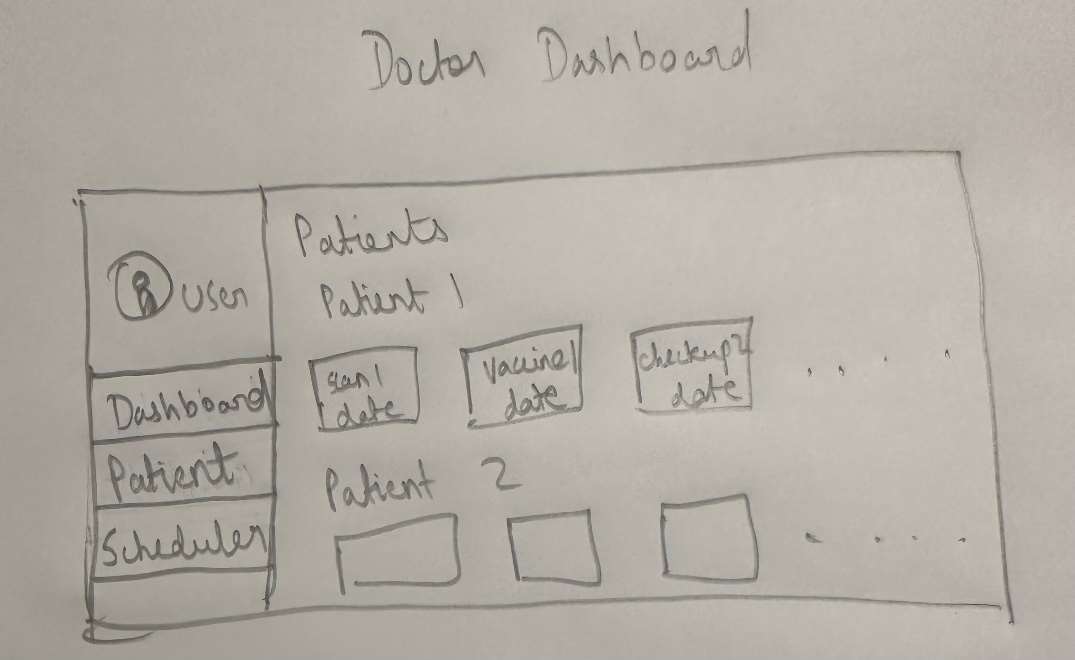 Doctor Dashboard
User
Dashboard
Patient
Scheduler
Patients
Patient 1
scan 1
date
vaccine 1
date
checkup 2
date
Patient 2